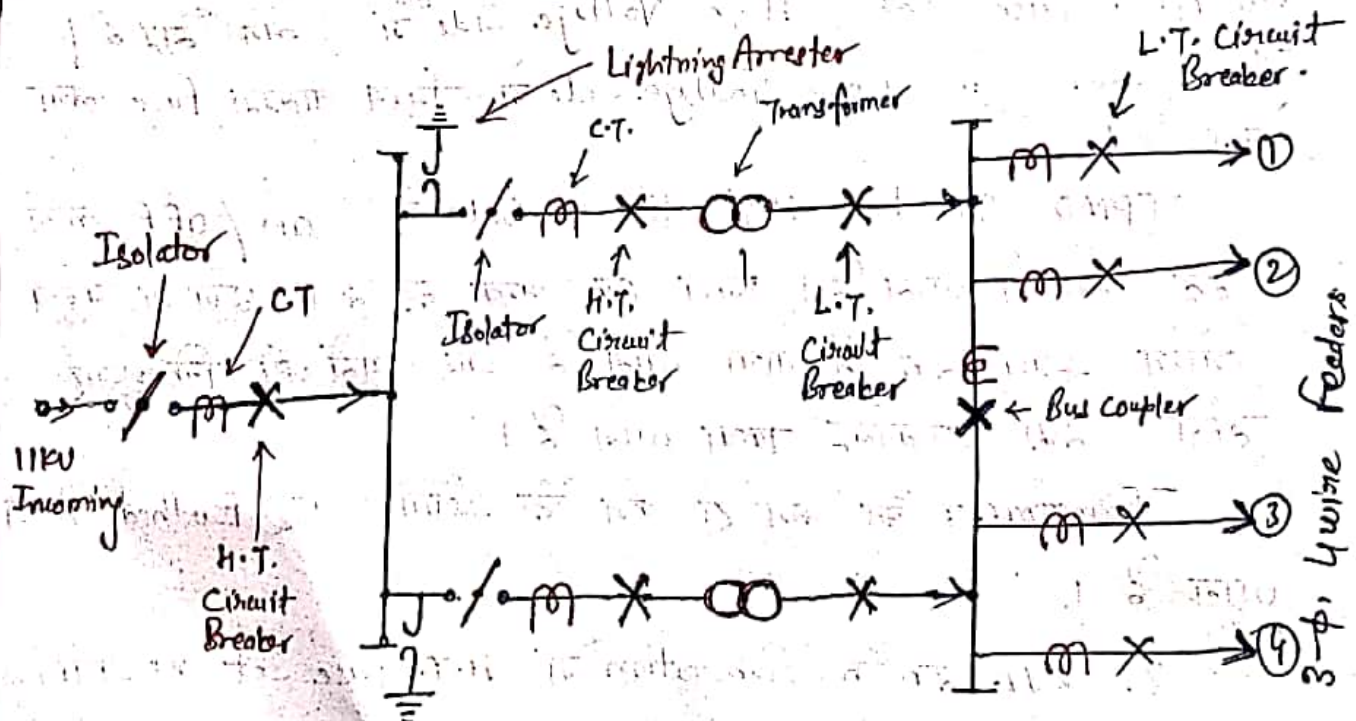 Lightning Arrester
L.T. Circuit
Breaker.
C.T.
Transformer
①
Isolator
CT
②
Isolator
H.T.
Circuit
Breaker
L.T.
Circuit
Breaker
← Bus Coupler
11KV
Incoming
H.T.
Circuit
Breaker
③
④
3-φ, 4 wire feeders